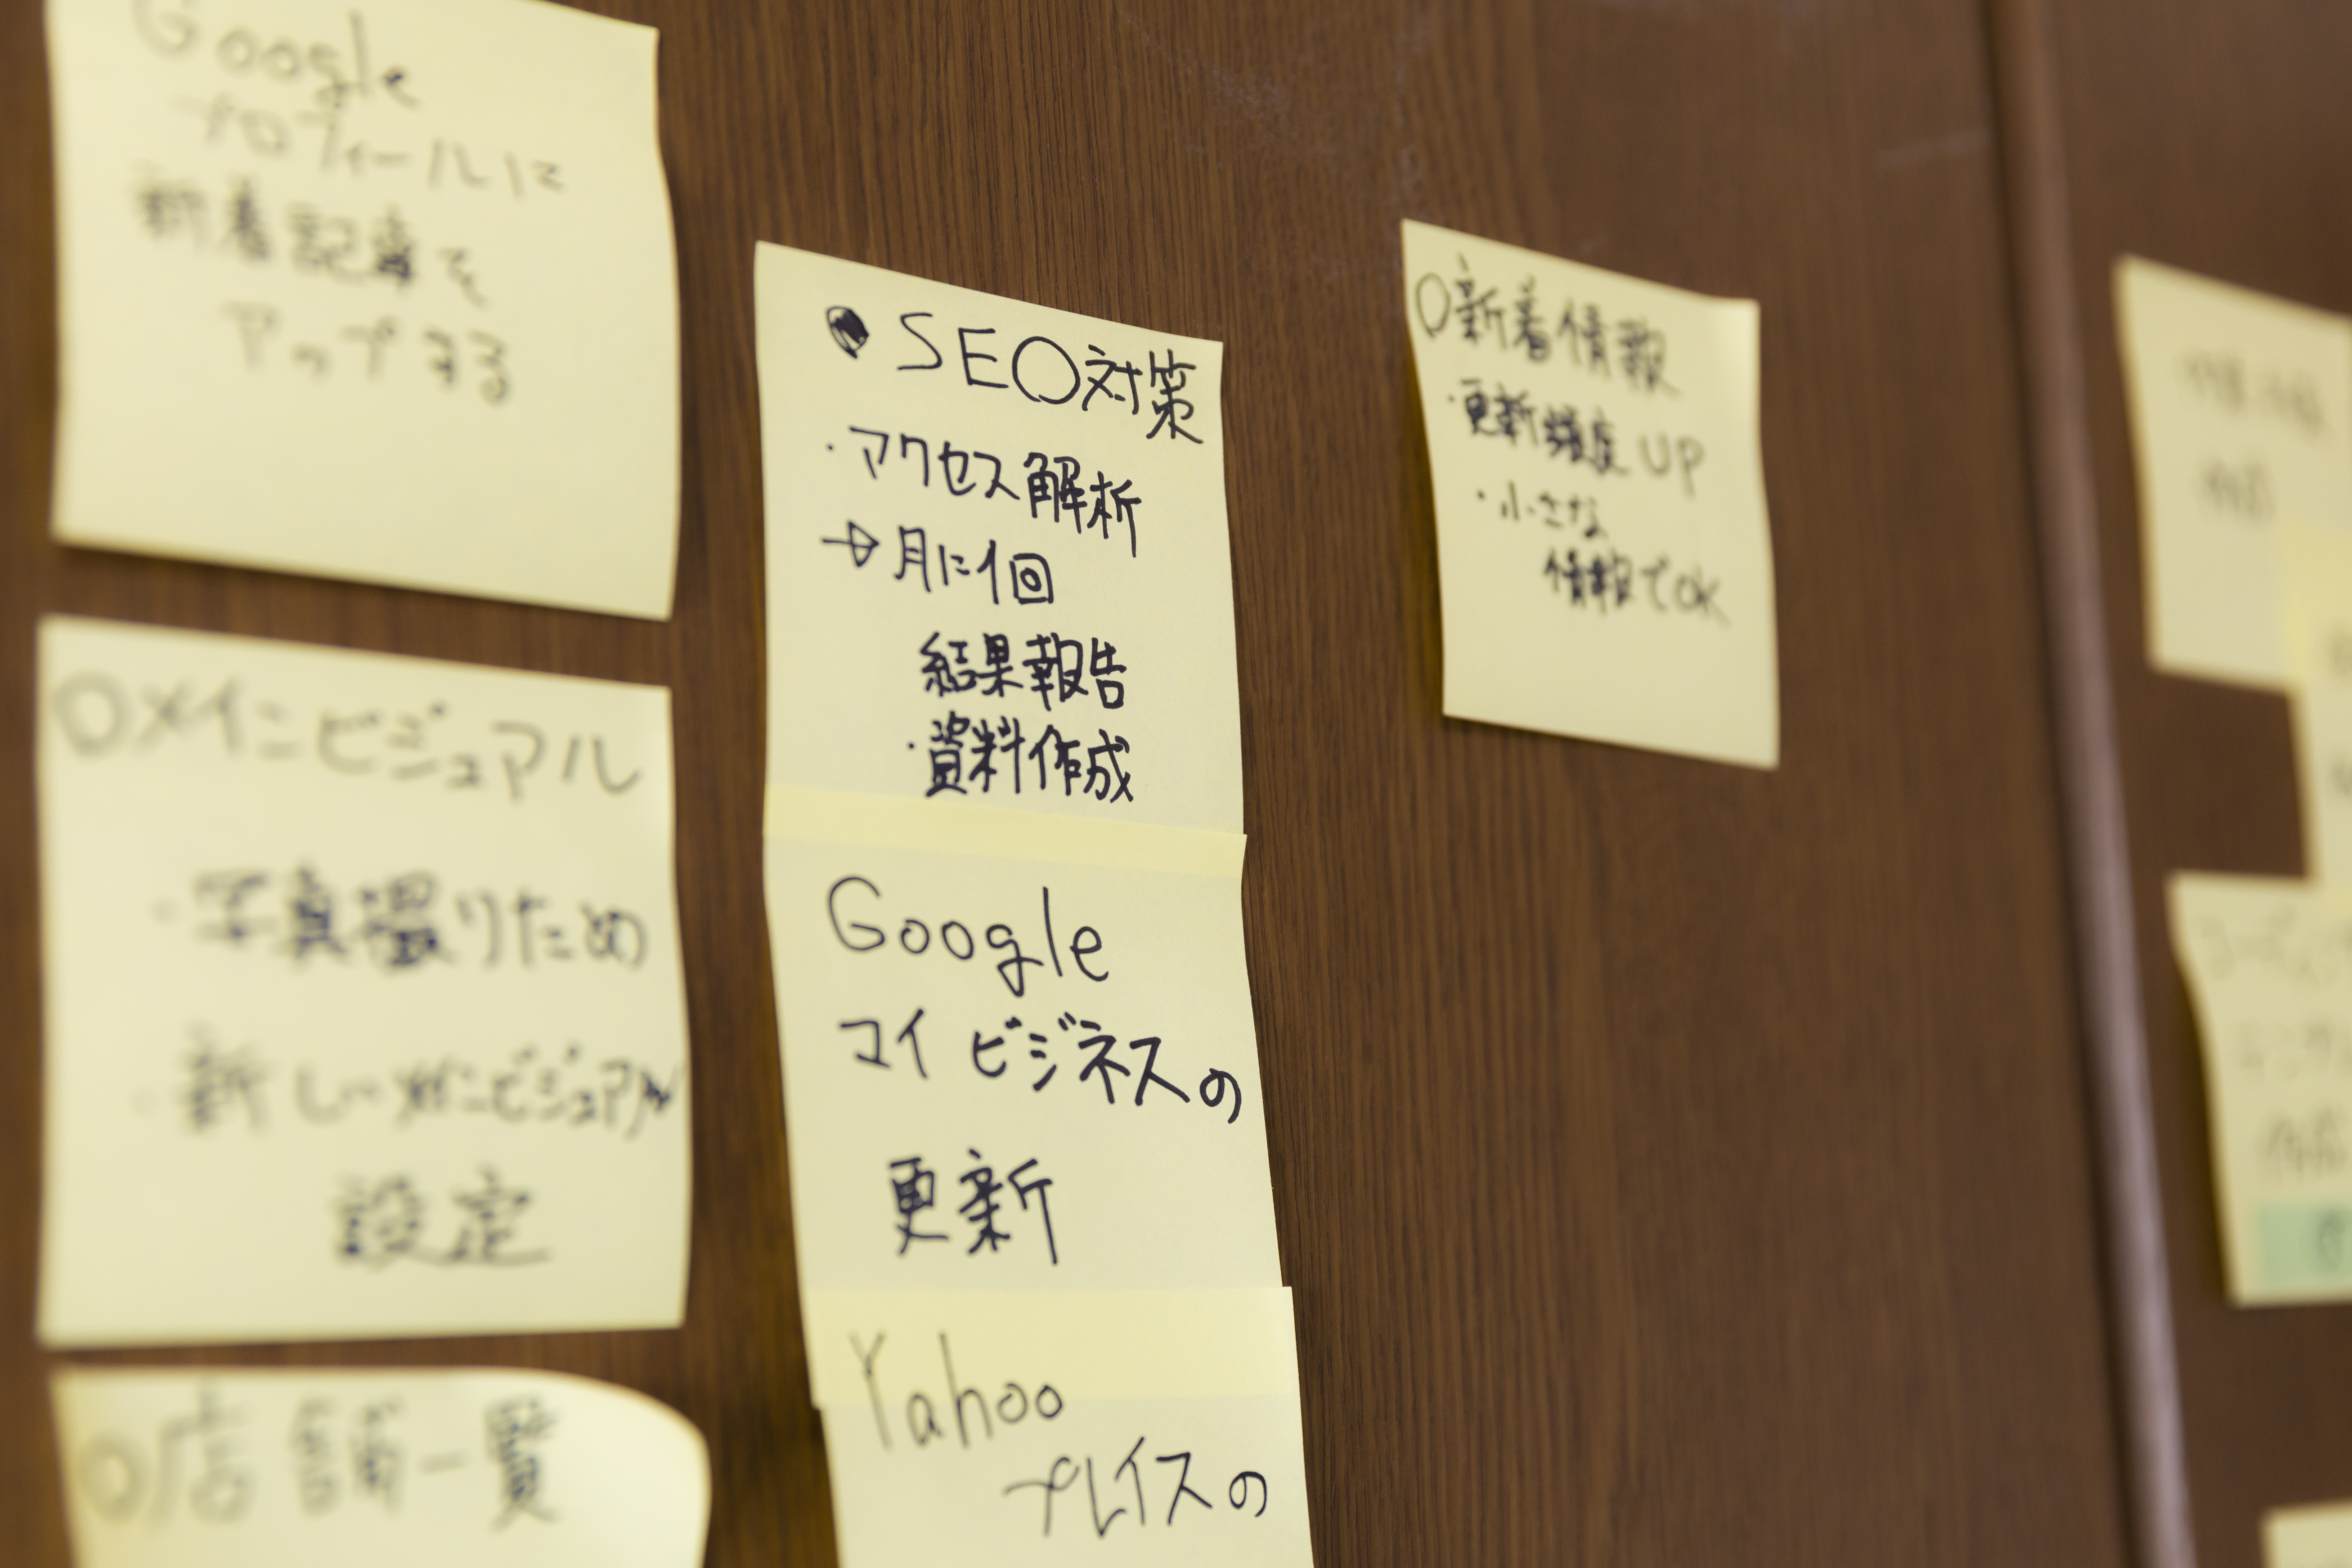 Google
プロフィールに
新着記事を
アップする
○メインビジュアル
・写真撮りため
・新しいメインビジュアル
設定
○店舗一覧
● SEO対策
・アクセス解析
→月に1回
結果報告
・資料作成
Google
マイビジネスの
更新
Yahoo
プレイスの
○新着情報
・更新頻度UP
・小さな
情報でOK